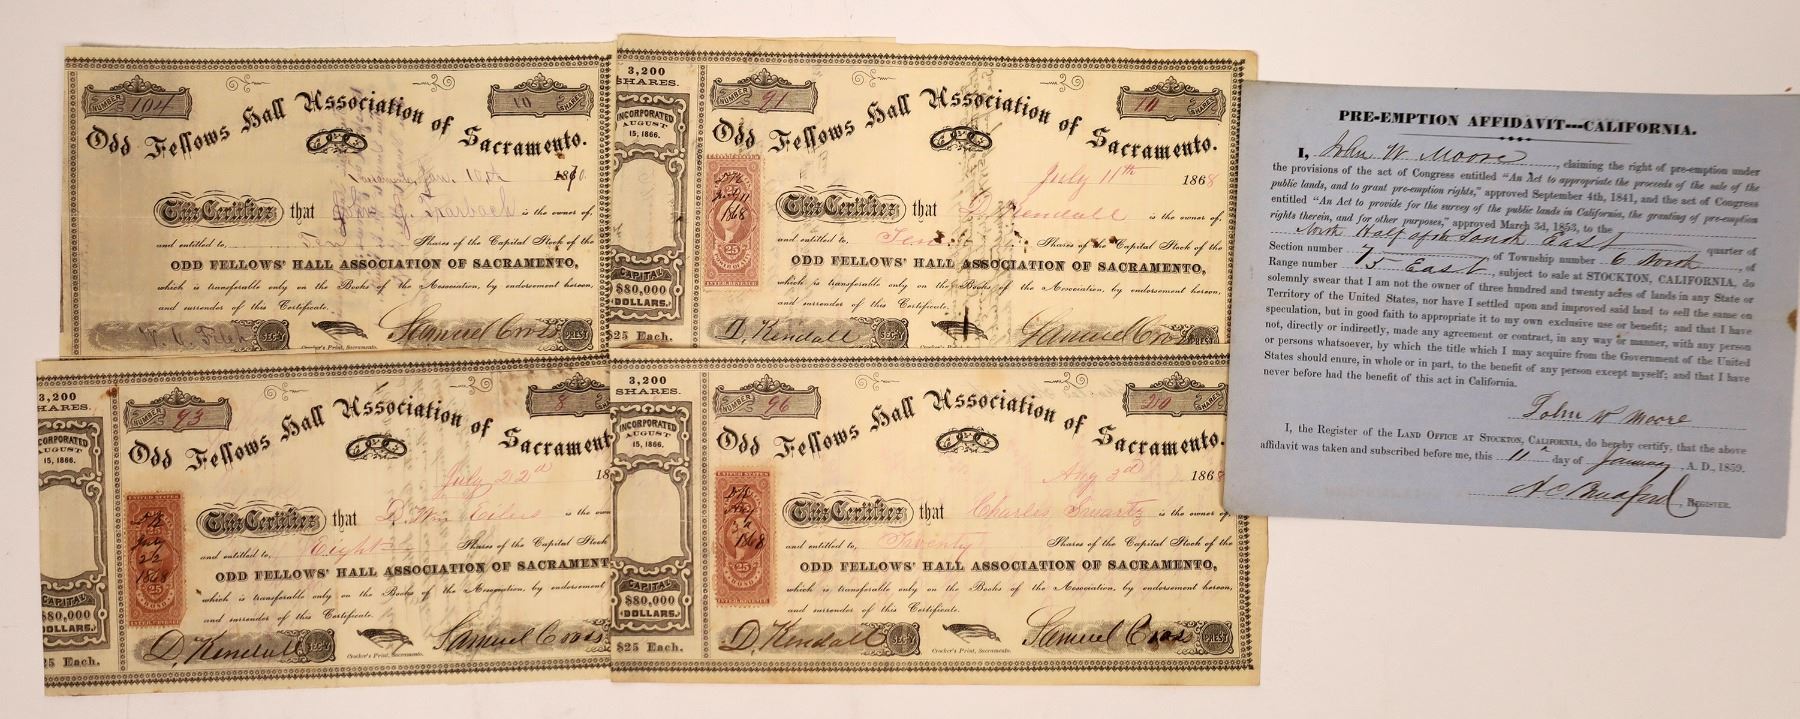 NUMBER 104
10 SHARES
Odd Fellows Hall Association of Sacramento.
Sacramento, Jan. 10th 1870.
This Certifies that
is the owner of,
and entitled to, Ten Shares of the Capital Stock of the
ODD FELLOWS' HALL ASSOCIATION OF SACRAMENTO,
which is transferable only on the Books of the Association, by endorsement hereon,
and surrender of this Certificate.
SEC'Y
Samuel Cross PREST
Crocker's Print, Sacramento.
3,200
SHARES.
INCORPORATED
AUGUST
15, 1866.
CAPITAL
$80,000
DOLLARS.
$25 Each.
NUMBER 91
10 SHARES
Odd Fellows Hall Association of Sacramento.
July 11th 1868
This Certifies that D. Kendall is the owner of,
and entitled to, Ten Shares of the Capital Stock of the
ODD FELLOWS' HALL ASSOCIATION OF SACRAMENTO,
which is transferable only on the Books of the Association, by endorsement hereon,
and surrender of this Certificate.
D. Kendall SEC'Y
Samuel Cross PREST
3,200
SHARES.
INCORPORATED
AUGUST
15, 1866.
CAPITAL
$80,000
DOLLARS.
25 Each.
NUMBER 93
8 SHARES
Odd Fellows Hall Association of Sacrament
July 22d 18
This Certifies that D. Wm Eilers is the own
and entitled to, Eight Shares of the Capital Stock
ODD FELLOWS' HALL ASSOCIATION OF SACRAMENT
which is transferable only on the Books of the Association, by endorsement
and surrender of this Certificate.
UNITED STATES
25
INTER. REVENUE
July
22
1868
D. Kendall SEC'Y
Samuel Cross
Crocker's Print, Sacramento.
3,200
SHARES.
INCORPORATED
AUGUST
15, 1866.
CAPITAL
$80,000
DOLLARS.
$25 Each.
NUMBER 96
20 SHARES
Odd Fellows Hall Association of Sacramento.
Aug 3d 1868
This Certifies that Charles Swartz is the owner of,
and entitled to, Twenty Shares of the Capital Stock of the
ODD FELLOWS' HALL ASSOCIATION OF SACRAMENTO,
which is transferable only on the Books of the Association, by endorsement hereon,
and surrender of this Certificate.
D. Kendall SEC'Y
Samuel Cross PREST
Crocker's Print, Sacramento.
PRE-EMPTION AFFIDAVIT---CALIFORNIA.
I, John W Moore, claiming the right of pre-emption under
the provisions of the act of Congress entitled "An Act to appropriate the proceeds of the sale of the
public lands, and to grant pre-emption rights," approved September 4th, 1841, and the act of Congress
entitled "An Act to provide for the survey of the public lands in California, the granting of pre-emption
rights therein, and for other purposes," approved March 3d, 1853, to the
North Half of the South East quarter of
Section number 7 of Township number 6 North, of
Range number 5 East, subject to sale at STOCKTON, CALIFORNIA, do
solemnly swear that I am not the owner of three hundred and twenty acres of lands in any State or
Territory of the United States, nor have I settled upon and improved said land to sell the same on
speculation, but in good faith to appropriate it to my own exclusive use or benefit; and that I have
not, directly or indirectly, made any agreement or contract, in any way or manner, with any person
or persons whatsoever, by which the title which I may acquire from the Government of the United
States should enure, in whole or in part, to the benefit of any person except myself; and that I have
never before had the benefit of this act in California.
John W Moore
I, the Register of the LAND OFFICE AT STOCKTON, CALIFORNIA, do hereby certify, that the above
affidavit was taken and subscribed before me, this 11th day of January, A. D., 1859.
REGISTER.